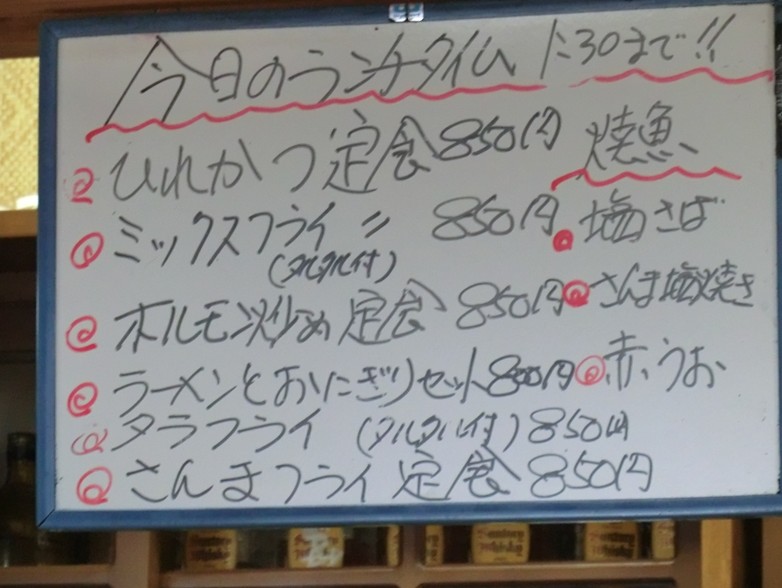 今日のランチタイム 1:30まで!!
ひれかつ定食 850円
ミックスフライ 〃 850円
(タルタル付)
ホルモン炒め定食 850円
ラーメンとおにぎりセット 800円
タラフライ (タルタル付) 850円
さんまフライ定食 850円
焼魚
塩さば
さんま塩焼き
赤うお